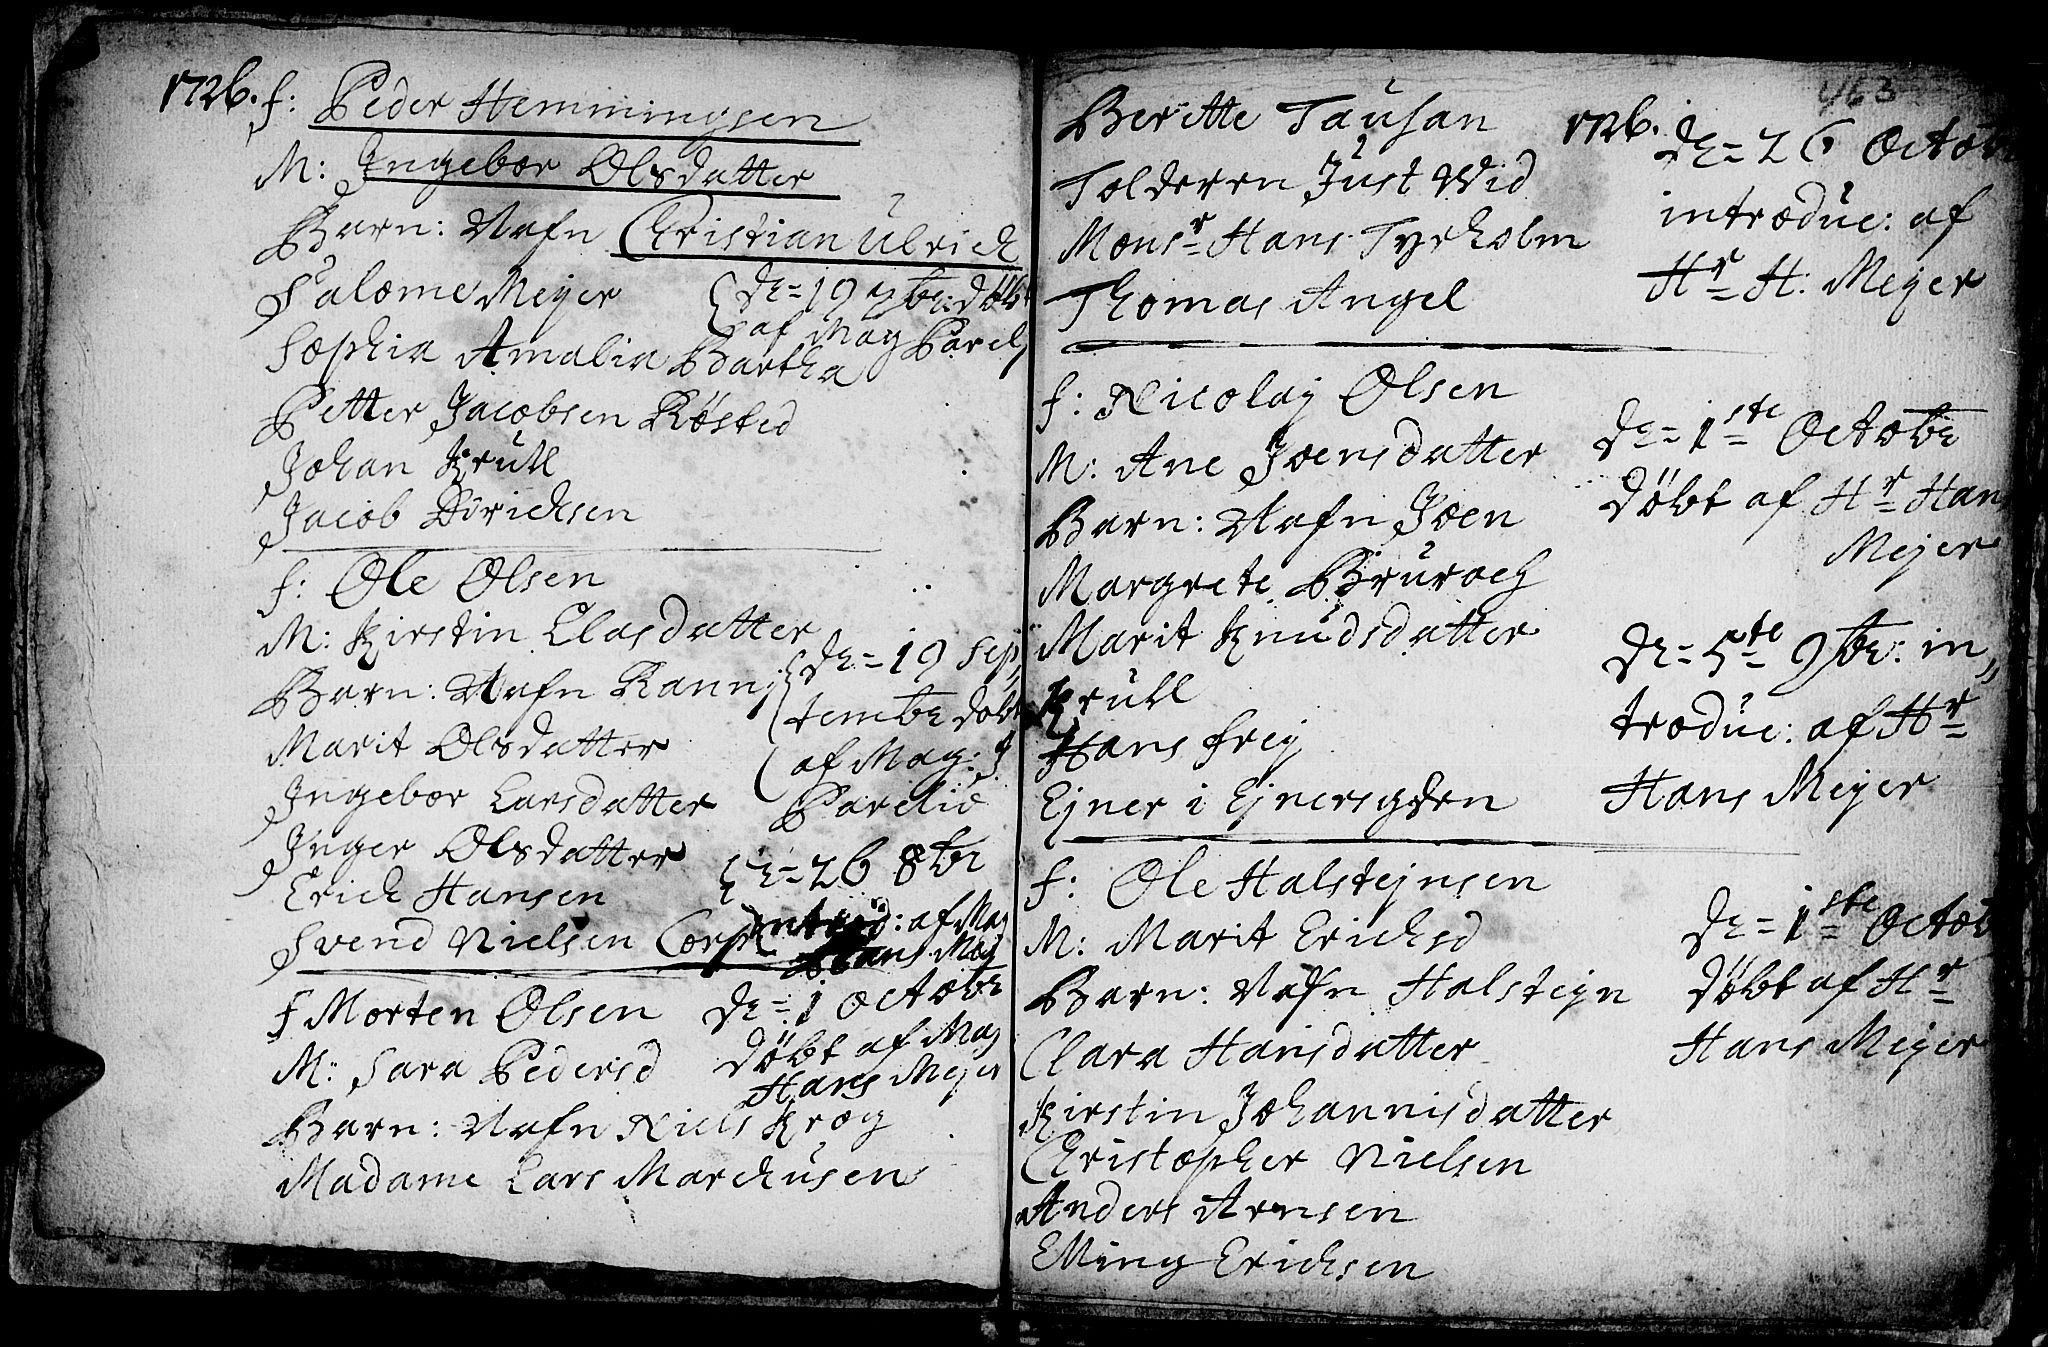 1726. f: Peder Hemmingsen
M: Ingebor Olsdatter
Barn: Nafn Christian Ulrich
Salome Meyer
d: 19 7br: døbt
af Mag Parel
Sophia Amalia Bartha
Petter Jacobsen Røsted
Johan Krull
Jacob Dirichsen
f: Ole Olsen
M: Kirstin Olasdatter
Barn: Nafn Ranni
d: 19 Sep,
tembr døbt
af Mag: J
Parelio
Marit Olsdatter
Ingebor Larsdatter
Inger Olsdatter
Erich Hansen
d: 26 8br
introd: af Mag
Hans Mey
Svend Nielsen Corp
f Morten Olsen
M: Sara Pedersd
d: 1 Octobr
døbt af Mag
Hans Meyer
Barn: Nafn Niels Krog
Madame Lars Marchusen
463
Beritte Tausan
Tolderen Just Wid
Monsr Hans Tyrholm
Thomas Angel
1726. d: 26 Octob
introduc: af
Hr H: Meyer
f: Nicolay Olsen
M: Ane Joensdatter
Barn: Nafn Joen
Margrete Bruroch
Marit Knudsdatter
Krull
Hans frey
Ejner i Ejnersgden
d: 1ste Octobr
døbt af Hr Han
Mejer
d: 5te 9br: in,,
troduc: af Hr
Hans Meyer
f: Ole Halstejnsen
M: Marit Erichsd
Barn: Nafn Halsteyn
Clara Hansdatter
Kirstin Johannisdatter
Christopher Nielsen
Anders Arnsen
Elling Erichsen
d: 1ste Octob
døbt af Hr
Hans Meyer